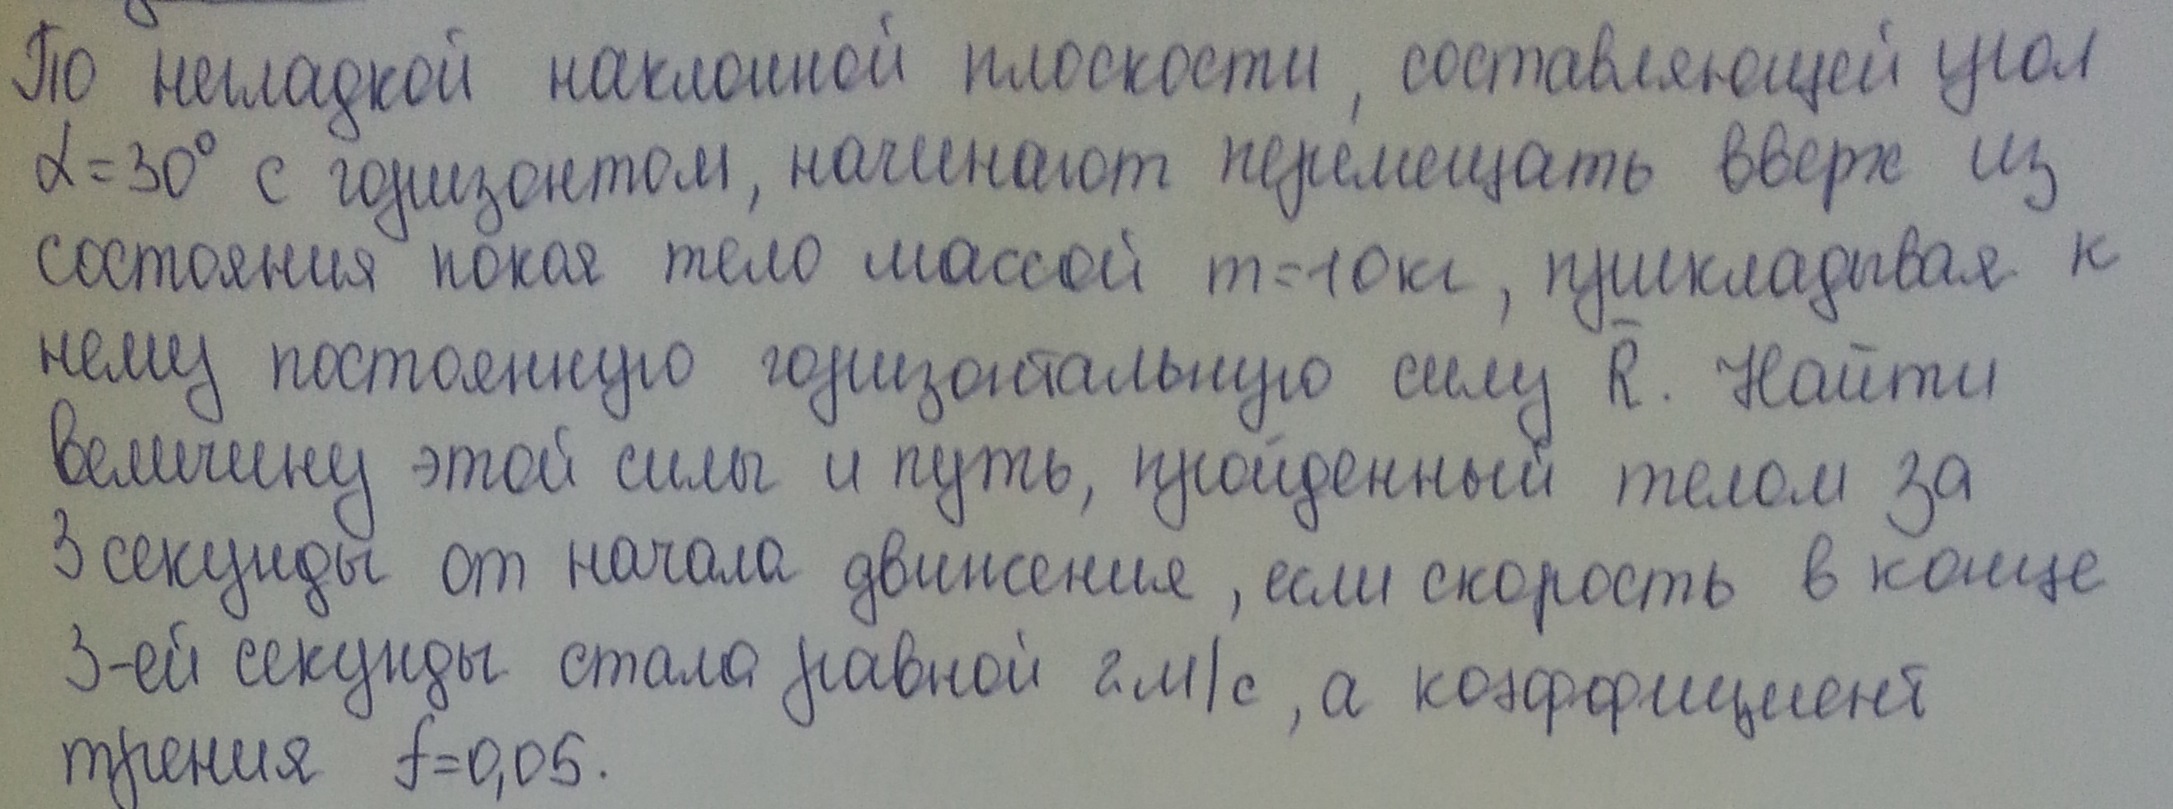 По негладкой наклонной плоскости, составляющей угол
α=30° с горизонтом, начинают перемещать вверх из
состояния покоя тело массой m=10кг, прикладывая к
нему постоянную горизонтальную силу R̄. Найти
величину этой силы и путь, пройденный телом за
3 секунды от начала движения, если скорость в конце
3-ей секунды стала равной 2м/с, а коэффициент
трения f=0,05.